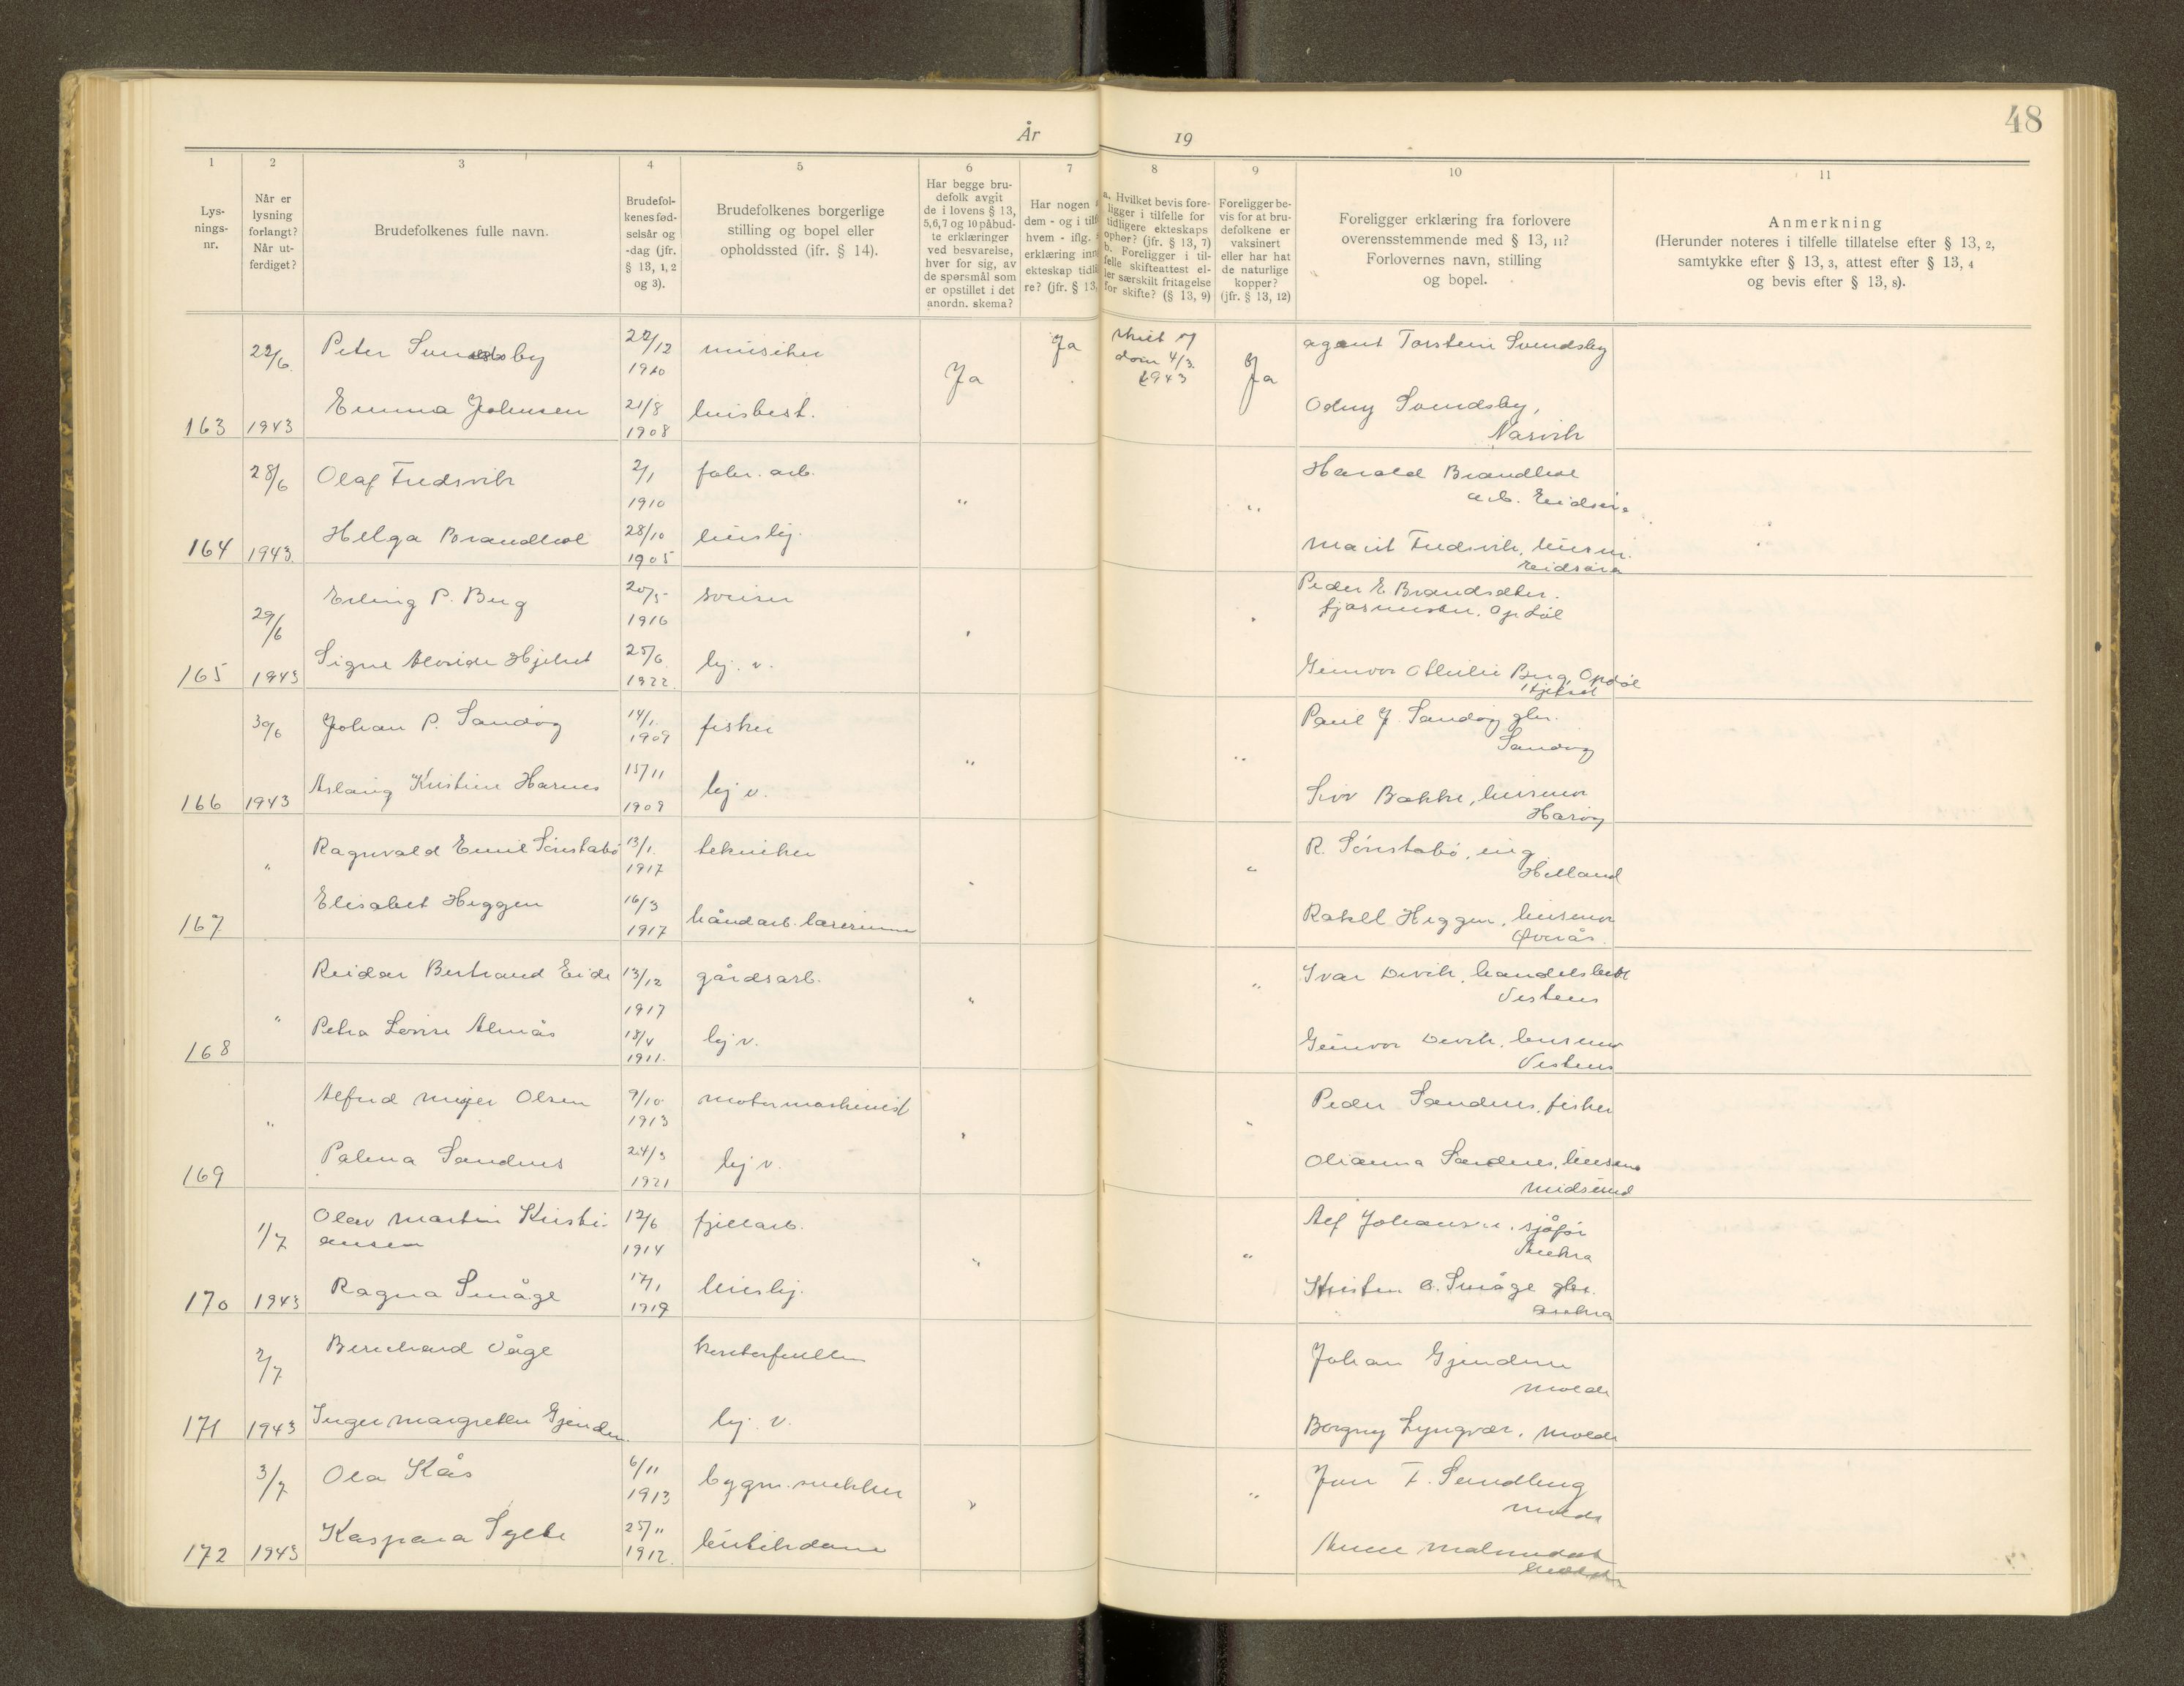 År 19
48
1 2 3 4 5 6 7 8 9 10 11
Lys-
nings-
nr.
Når er
lysning
forlangt?
Når ut-
ferdiget?
Brudefolkenes fulle navn.
Brudefol-
kenes fød-
selsår og
-dag (jfr.
§ 13, 1, 2
og 3).
Brudefolkenes borgerlige
stilling og bopel eller
opholdssted (jfr. § 14).
Har begge bru-
defolk avgit
de i lovens § 13,
5,6,7 og 10 påbud-
te erklæringer
ved besvarelse,
hver for sig, av
de spørsmål som
er opstillet i det
anordn. skema?
Har nogen
dem - og i tilf
hvem - iflg.
erklæring inn
ekteskap tidli
re? (jfr. § 13,
a. Hvilket bevis fore-
ligger i tilfelle for
tidligere ekteskaps
ophør? (jfr. § 13, 7)
b. Foreligger i til-
felle skifteattest el-
ler særskilt fritagelse
for skifte? (§ 13, 9)
Foreligger be-
vis for at bru-
defolkene er
vaksinert
eller har hat
de naturlige
kopper?
(jfr. § 13, 12)
Foreligger erklæring fra forlovere
overensstemmende med § 13, 11?
Forlovernes navn, stilling
og bopel.
Anmerkning
(Herunder noteres i tilfelle tillatelse efter § 13, 2,
samtykke efter § 13, 3, attest efter § 13, 4
og bevis efter § 13, 8).
22/6 Peter 22/12 musiker Ja agent Torstein Svendsby
1910 Ja dom 4/3 1943 Ja
Emma Johnsen 21/8 husbest. Odny Svendsby,
163 1943 1908 Narvik
28/6 Olaf Tredsvik 2/1 fabr. arb. Harald Brandhol
1910 " " arb. Eidsøra
Helga Brandhol 28/10 huslig.
164 1943 1905 Marit Tredsvik, husm.
Eidsøra
Erling P. Berg 20/5 Peder E Brandsæter
29/6 1916 fjøsmester. Opdøl
Signe Hjelset 25/6 hj. v. Gunvor Berg, Opdøl
165 1943 1922 Hjelset
30/6 Johan P. Sandøy 14/1 fisker Paul J. Sandøy gbr.
1909 Sandøy
Aslaug Kristine Harnes 15/11 hj v. Siv Bakke, husmor
166 1943 1909 Harøy
Ragnvald Emil Sønstabø 13/1 tekniker R. Sønstabø, ing
" 1917 " Helland
Elisabet Heggen 16/3 håndarb. lærerinne Rakel Heggen, husmor
167 1917 Øverås
Reidar Bertrand Eide 13/12 gårdsarb. Ivar
1917 " " Vestnes
" Petra Lovise Almås 18/4 hj v. Gunvor
168 1911. Vestnes
Alfred Olsen 9/10 motormaskinist Peder Sandnes, fisker
" 1913 "
Palma Sandnes 24/3 hj v. Olianna Sandnes, husmor
169 1921 Midsund
Olav Martin Kristi- 12/6 fjellarb. Alf Johansen, sjåfør
1/7 ansen 1914 " " Aukra
Ragna Småge 17/1 huslig. Kristen O. Småge gbr.
170 1943 1919 Aukra
2/7 Bernhard Våge kontorfullm Johan Gjendem
Molde
171 1943 Inger Margrethe Gjendem hj. v. Borgny Lyngvær, Molde
3/7 Ola Kås 6/11 bygn. snekker Jon T. Sundling
1913 " " Molde
Kaspara Sylte 25/11 butikdame Anne
172 1943 1912.